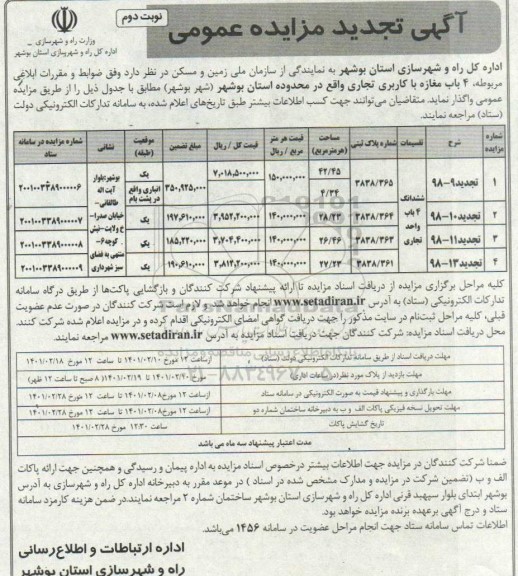 آگهی تجدید مزایده عمومی
نوبت دوم
وزارت راه و شهرسازی
اداره کل راه و شهرسازی استان بوشهر
اداره کل راه و شهرسازی استان بوشهر به نمایندگی از سازمان ملی زمین و مسکن در نظر دارد وفق ضوابط و مقررات ابلاغی
مربوطه، ۴ باب مغازه با کاربری تجاری واقع در محدوده استان بوشهر (شهر بوشهر) مطابق با جدول ذیل را از طریق مزایده
عمومی واگذار نماید. متقاضیان می‌توانند جهت کسب اطلاعات بیشتر طبق تاریخ‌های اعلام شده، به سامانه تدارکات الکترونیکی دولت
(ستاد) مراجعه نمایند.
شماره مزایده شرح تقسیمات شماره پلاک ثبتی مساحت (هرمترمربع) قیمت هر متر مربع / ریال قیمت کل / ریال مبلغ تضمین موقعیت (طبقه) نشانی شماره مزایده در سامانه ستاد
۱ تجدید۹-۹۸ ۳۸۳۸/۳۶۵ ۴۲/۴۵ ۴/۳۴ ۱۵۰,۰۰۰,۰۰۰ ۷,۰۱۸,۵۰۰,۰۰۰ ۳۵۰,۹۲۵,۰۰۰ یک انباری واقع در پشت بام ۲۰۰۱۰۰۳۳۸۹۰۰۰۰۰۶
۲ تجدید۱۰-۹۸ ۳۸۳۸/۳۶۴ ۲۸/۲۳ ۱۴۰,۰۰۰,۰۰۰ ۳,۹۵۲,۲۰۰,۰۰۰ ۱۹۷,۶۱۰,۰۰۰ یک ۲۰۰۱۰۰۳۳۸۹۰۰۰۰۰۷
۳ تجدید۱۱-۹۸ ۳۸۳۸/۳۶۳ ۲۶/۴۶ ۱۴۰,۰۰۰,۰۰۰ ۳,۷۰۴,۴۰۰,۰۰۰ ۱۸۵,۲۲۰,۰۰۰ یک ۲۰۰۱۰۰۳۳۸۹۰۰۰۰۰۸
۴ تجدید۱۳-۹۸ ۳۸۳۸/۳۶۱ ۲۷/۲۳ ۱۴۰,۰۰۰,۰۰۰ ۳,۸۱۲,۲۰۰,۰۰۰ ۱۹۰,۶۱۰,۰۰۰ یک ۲۰۰۱۰۰۳۳۸۹۰۰۰۰۰۹
ششدانگ ۴ باب واحد تجاری
بوشهر:بلوار آیت اله طالقانی- خیابان صدرا- خ ولایت-نبش کوچه۶- منتهی به فضای سبز شهرداری
کلیه مراحل برگزاری مزایده از دریافت اسناد مزایده تا ارائه پیشنهاد شرکت کنندگان و بازگشایی پاکت‌ها از طریق درگاه سامانه
تدارکات الکترونیکی (ستاد) به آدرس www.setadiran.ir انجام خواهد شد و لازم است شرکت کنندگان در صورت عدم عضویت
قبلی، کلیه مراحل ثبت‌نام در سایت مذکور را جهت دریافت گواهی امضای الکترونیکی اقدام کرده و در مزایده اعلام شده شرکت کنند.
محل دریافت اسناد مزایده: شرکت کنندگان جهت دریافت اسناد مزایده به آدرس www.setadiran.ir مراجعه نمایند.
مهلت دریافت اسناد از طریق سامانه تدارکات الکترونیکی دولت (ستاد) ازساعت ۱۲ مورخ ۱۴۰۱/۰۲/۱۰ تا ساعت ۱۲ مورخ ۱۴۰۱/۰۲/۱۸
مهلت بازدید از پلاک مورد نظر(ساعات اداری) مورخ ۱۴۰۱/۰۲/۱۹ تا (۸ صبح تا ساعت ۱۲ ظهر)
مهلت بارگذاری و پیشنهاد قیمت به صورت الکترونیکی در سامانه ستاد ازساعت ۱۲ مورخ ۱۴۰۱/۰۲/۰۸ تا ساعت ۱۲ مورخ ۱۴۰۱/۰۲/۲۸
مهلت تحویل نسخه فیزیکی پاکات الف و ب به دبیرخانه ساختمان شماره دو ازساعت ۱۲ مورخ ۱۴۰۱/۰۲/۰۸ تا ساعت ۱۲ مورخ ۱۴۰۱/۰۲/۲۸
تاریخ گشایش پاکات ساعت ۱۲:۳۰ مورخ ۱۴۰۱/۰۲/۲۸
مدت اعتبار پیشنهاد سه ماه می باشد
ضمنا شرکت کنندگان در مزایده جهت اطلاعات بیشتر درخصوص اسناد مزایده به اداره پیمان و رسیدگی و همچنین جهت ارائه پاکات
الف و ب (تضمین شرکت در مزایده و مدارک مشخص شده در اسناد ) در موعد مقرر به دبیرخانه اداره کل راه و شهرسازی به آدرس
بوشهر ابتدای بلوار سپهبد قرنی اداره کل راه و شهرسازی استان بوشهر ساختمان شماره ۲ مراجعه نمایند.در ضمن هزینه کارمزد سامانه
ستاد و درج آگهی برعهده برنده مزایده خواهد بود.
اطلاعات تماس سامانه ستاد جهت انجام مراحل عضویت در سامانه ۱۴۵۶ می‌باشد.
اداره ارتباطات و اطلاع‌رسانی
راه و شهرسازی استان بوشهر